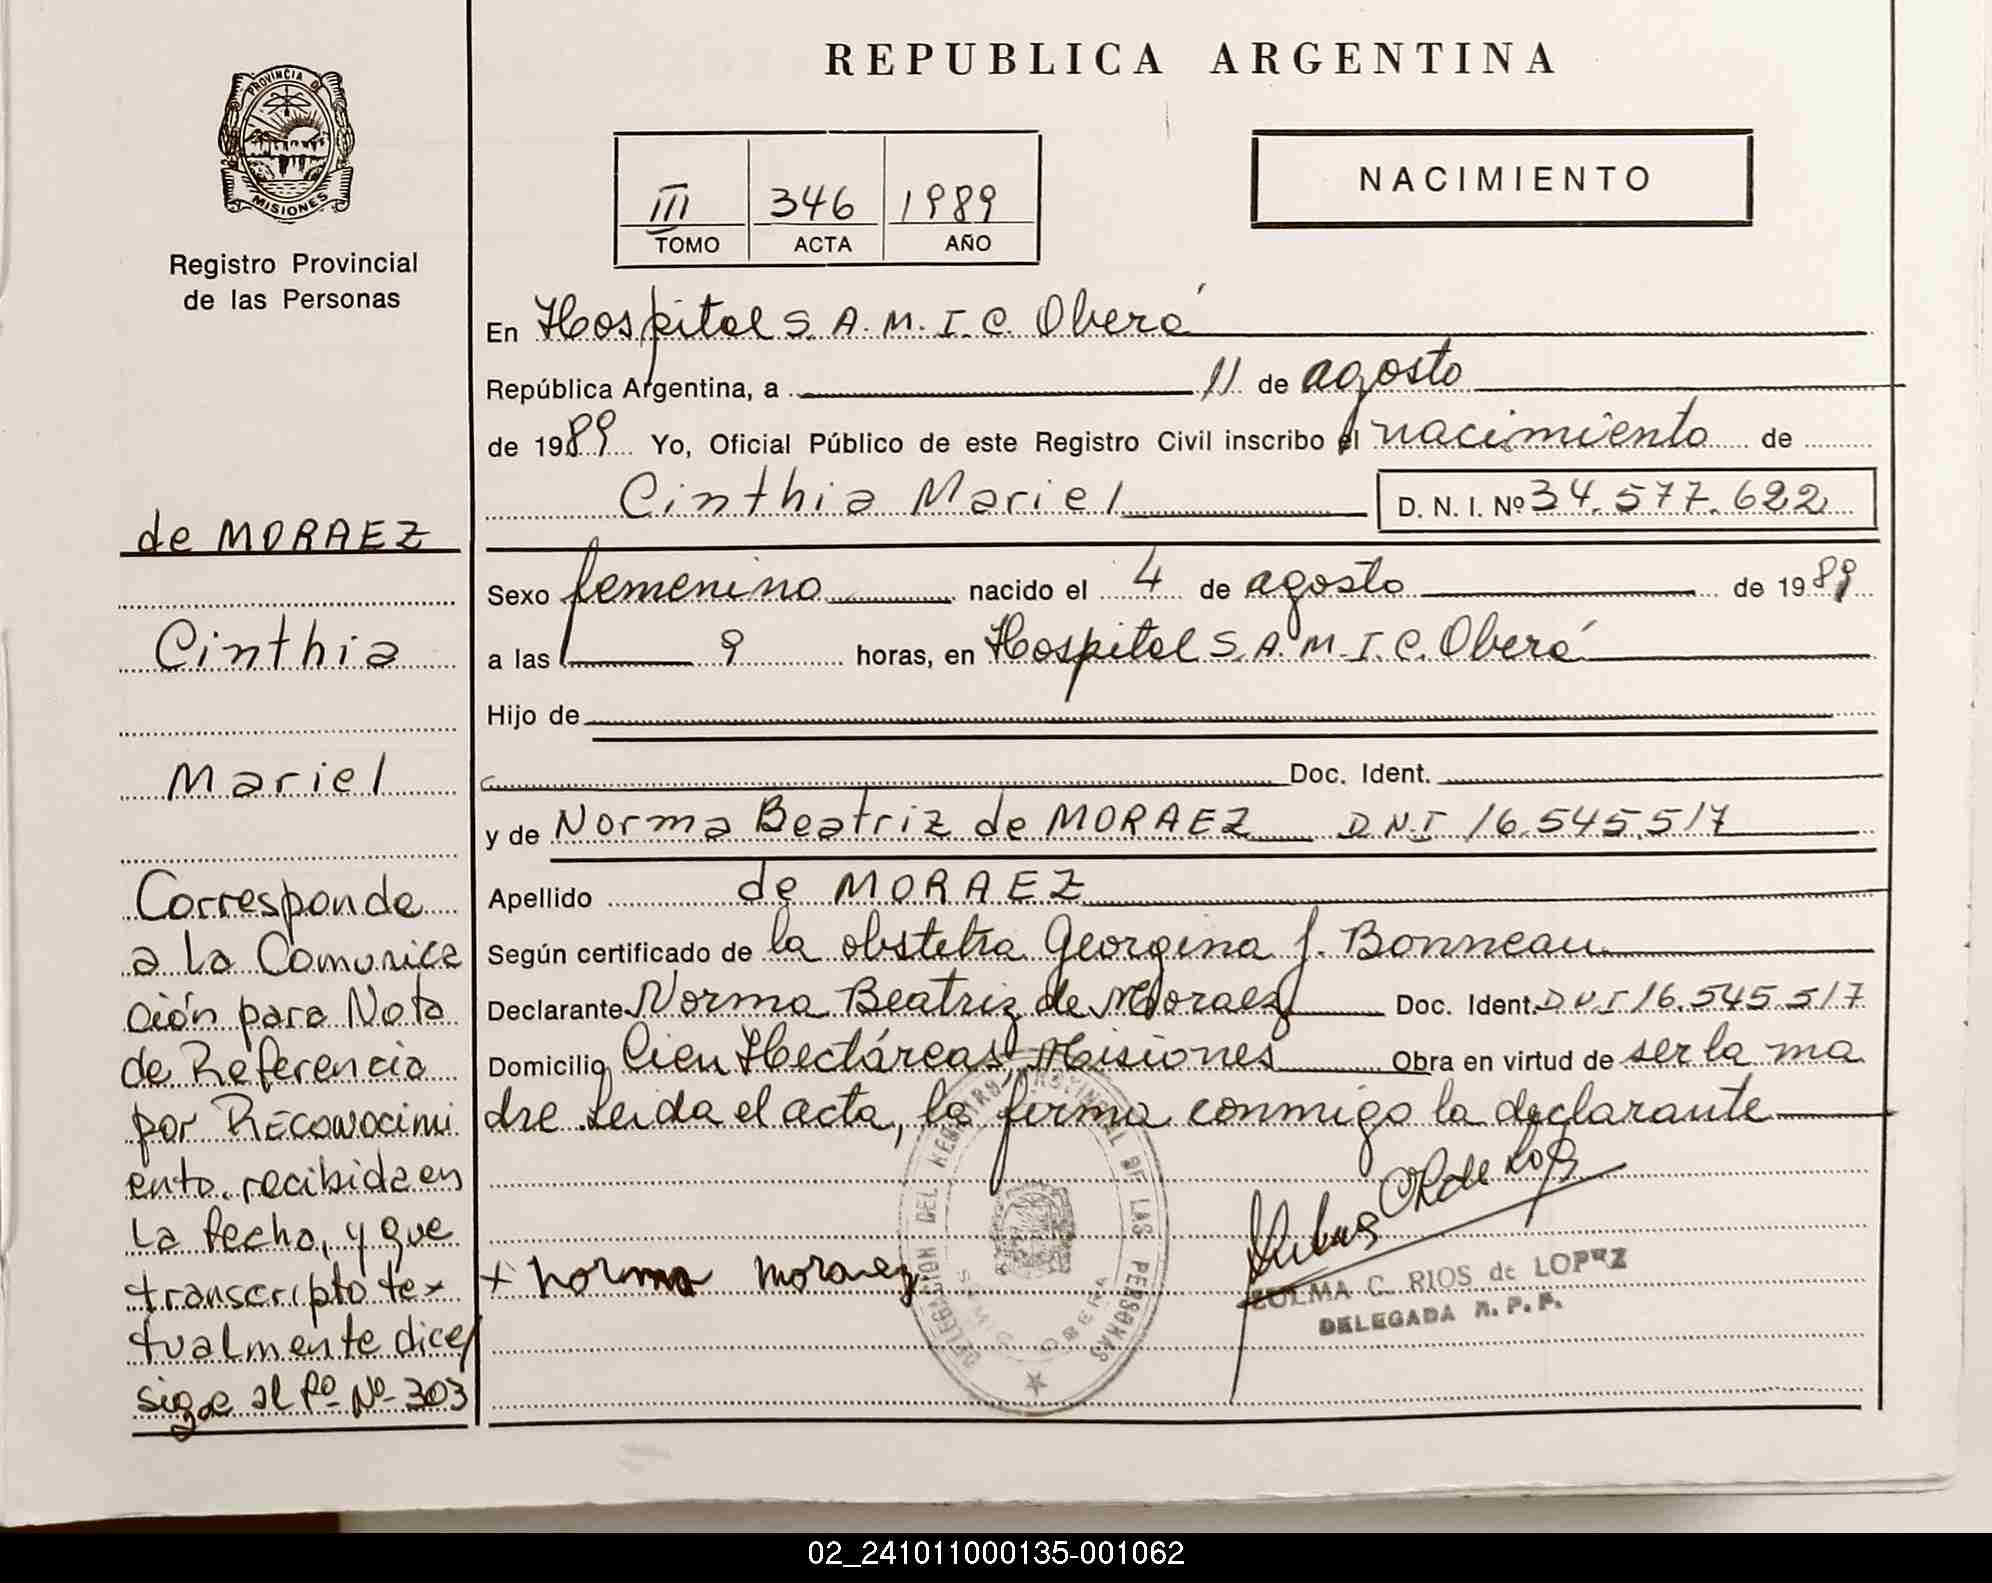 REPUBLICA ARGENTINA
PROVINCIA DE
MISIONES
Registro Provincial
de las Personas
III 346 1989
TOMO ACTA AÑO
NACIMIENTO
En Hospital S. A. M. I. C. Oberá
República Argentina, a 11 de agosto
de 1989 Yo, Oficial Público de este Registro Civil inscribo el nacimiento de
Cinthia Mariel D. N. I. Nº 34.577.622
Sexo femenino nacido el 4 de agosto de 1989
a las 9 horas, en Hospital S. A. M. I. C. Oberá
Hijo de
Doc. Ident.
y de Norma Beatriz de MORAEZ D.N.I 16.545.517
Apellido de MORAEZ
Según certificado de la obstetra Georgina J. Bonneau
Declarante Norma Beatriz de Moraez Doc. Ident. D.N.I 16.545.517
Domicilio Cien Hectáreas, Misiones Obra en virtud de ser la ma
dre. Leida el acta, la firma conmigo la declarante
+ norma moraez
DELEGACION DEL REGISTRO PROVINCIAL DE LAS PERSONAS
SAMIC OBERA
ZULMA C. RIOS de LOPEZ
DELEGADA R. P. P.
de MORAEZ
Cinthia
Mariel
Corresponde
a La Comunica
ción para Nota
de Referencia
por RECONOCIMI
ento. recibida en
La fecha, y que
transcripto tex
tualmente dice/
sigue al Fº Nº 303
02_241011000135-001062